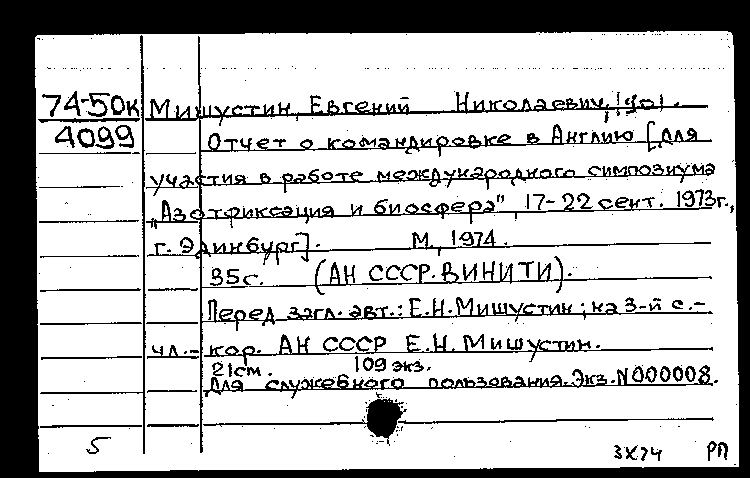 74-50к Мишустин, Евгений Николаевич, 1901.
4099 Отчет о командировке в Англию [для
участия в работе международного симпозиума
"Азотфиксация и биосфера", 17-22 сент. 1973г.,
г. Эдинбург]. М., 1974.
35с. (АН СССР. ВИНИТИ).
Перед загл. авт.: Е.Н. Мишустин; на 3-й с.-
чл.- кор. АН СССР Е.Н. Мишустин.
21см. 109 экз.
Для служебного пользования. Экз. N000008.
5 3X74 РП